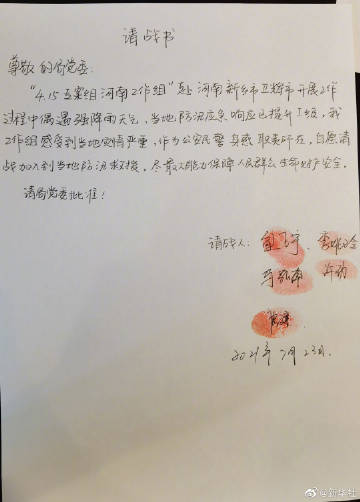 请战书
尊敬的局党委:
“4.15专案组河南工作组”赴河南新乡市卫辉市开展工作
过程中偶遇强降雨天气,当地防汛应急响应已提升I级,我
工作组感受到当地灾情严重,作为公安民警身感职责所在,自愿请
战加入到当地防汛救援。尽最大能力保障人民群众生命财产安全。
请局党委批准!
请战人:
2021年7月23日.
@新华社